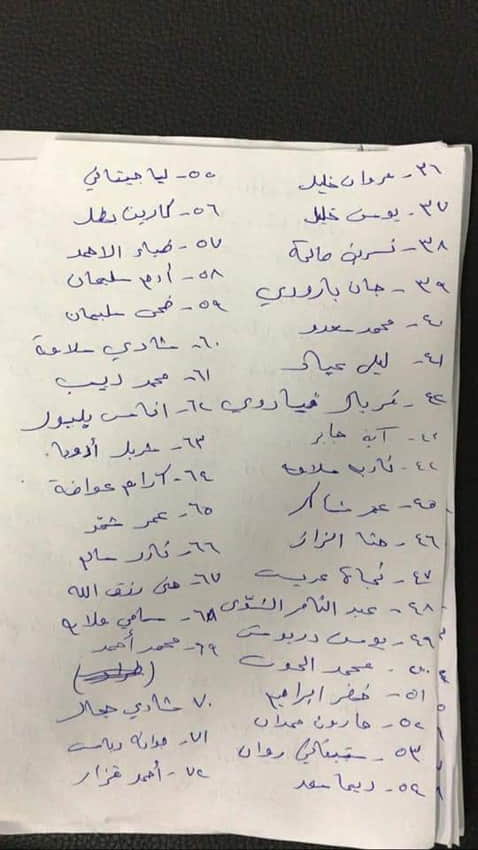 ٣٦- مروان خليل
٣٧- يوسف خليل
٣٨- نسرين صالحة
٣٩- جان بارودي
٤٠- محمد سعدو
٤١- ليلى عيال
٤٢- غريال
٤٣- آية جابر
٤٤- سلامة
٤٥- عمر شاكر
٤٦- حنا الزائر
٤٧- نجاة عريب
٤٨- عبد الناصر الشوّى
٤٩- يوسف درويش
٥٠- محمد الحوت
٥١- خضر ابراهيم
٥٢- هارون حمدان
٥٣- روان
٥٤- ديما سعد
٥٥- ليا جيتاني
٥٦- كارين بطل
٥٧- ضياء الاحمد
٥٨- أدم سليمان
٥٩- ضحى سليمان
٦٠- شادي سلامة
٦١- محمد ديب
٦٢- اناس
٦٣- شربل
٦٤- كرام عواضة
٦٥- عمر شمّر
٦٦- نادر سالم
٦٧- منى رزق الله
٦٨- سامي علايه
٦٩- محمد أحمد
٧٠- شادي جمال
٧١-
٧٢- أحمد قزاز